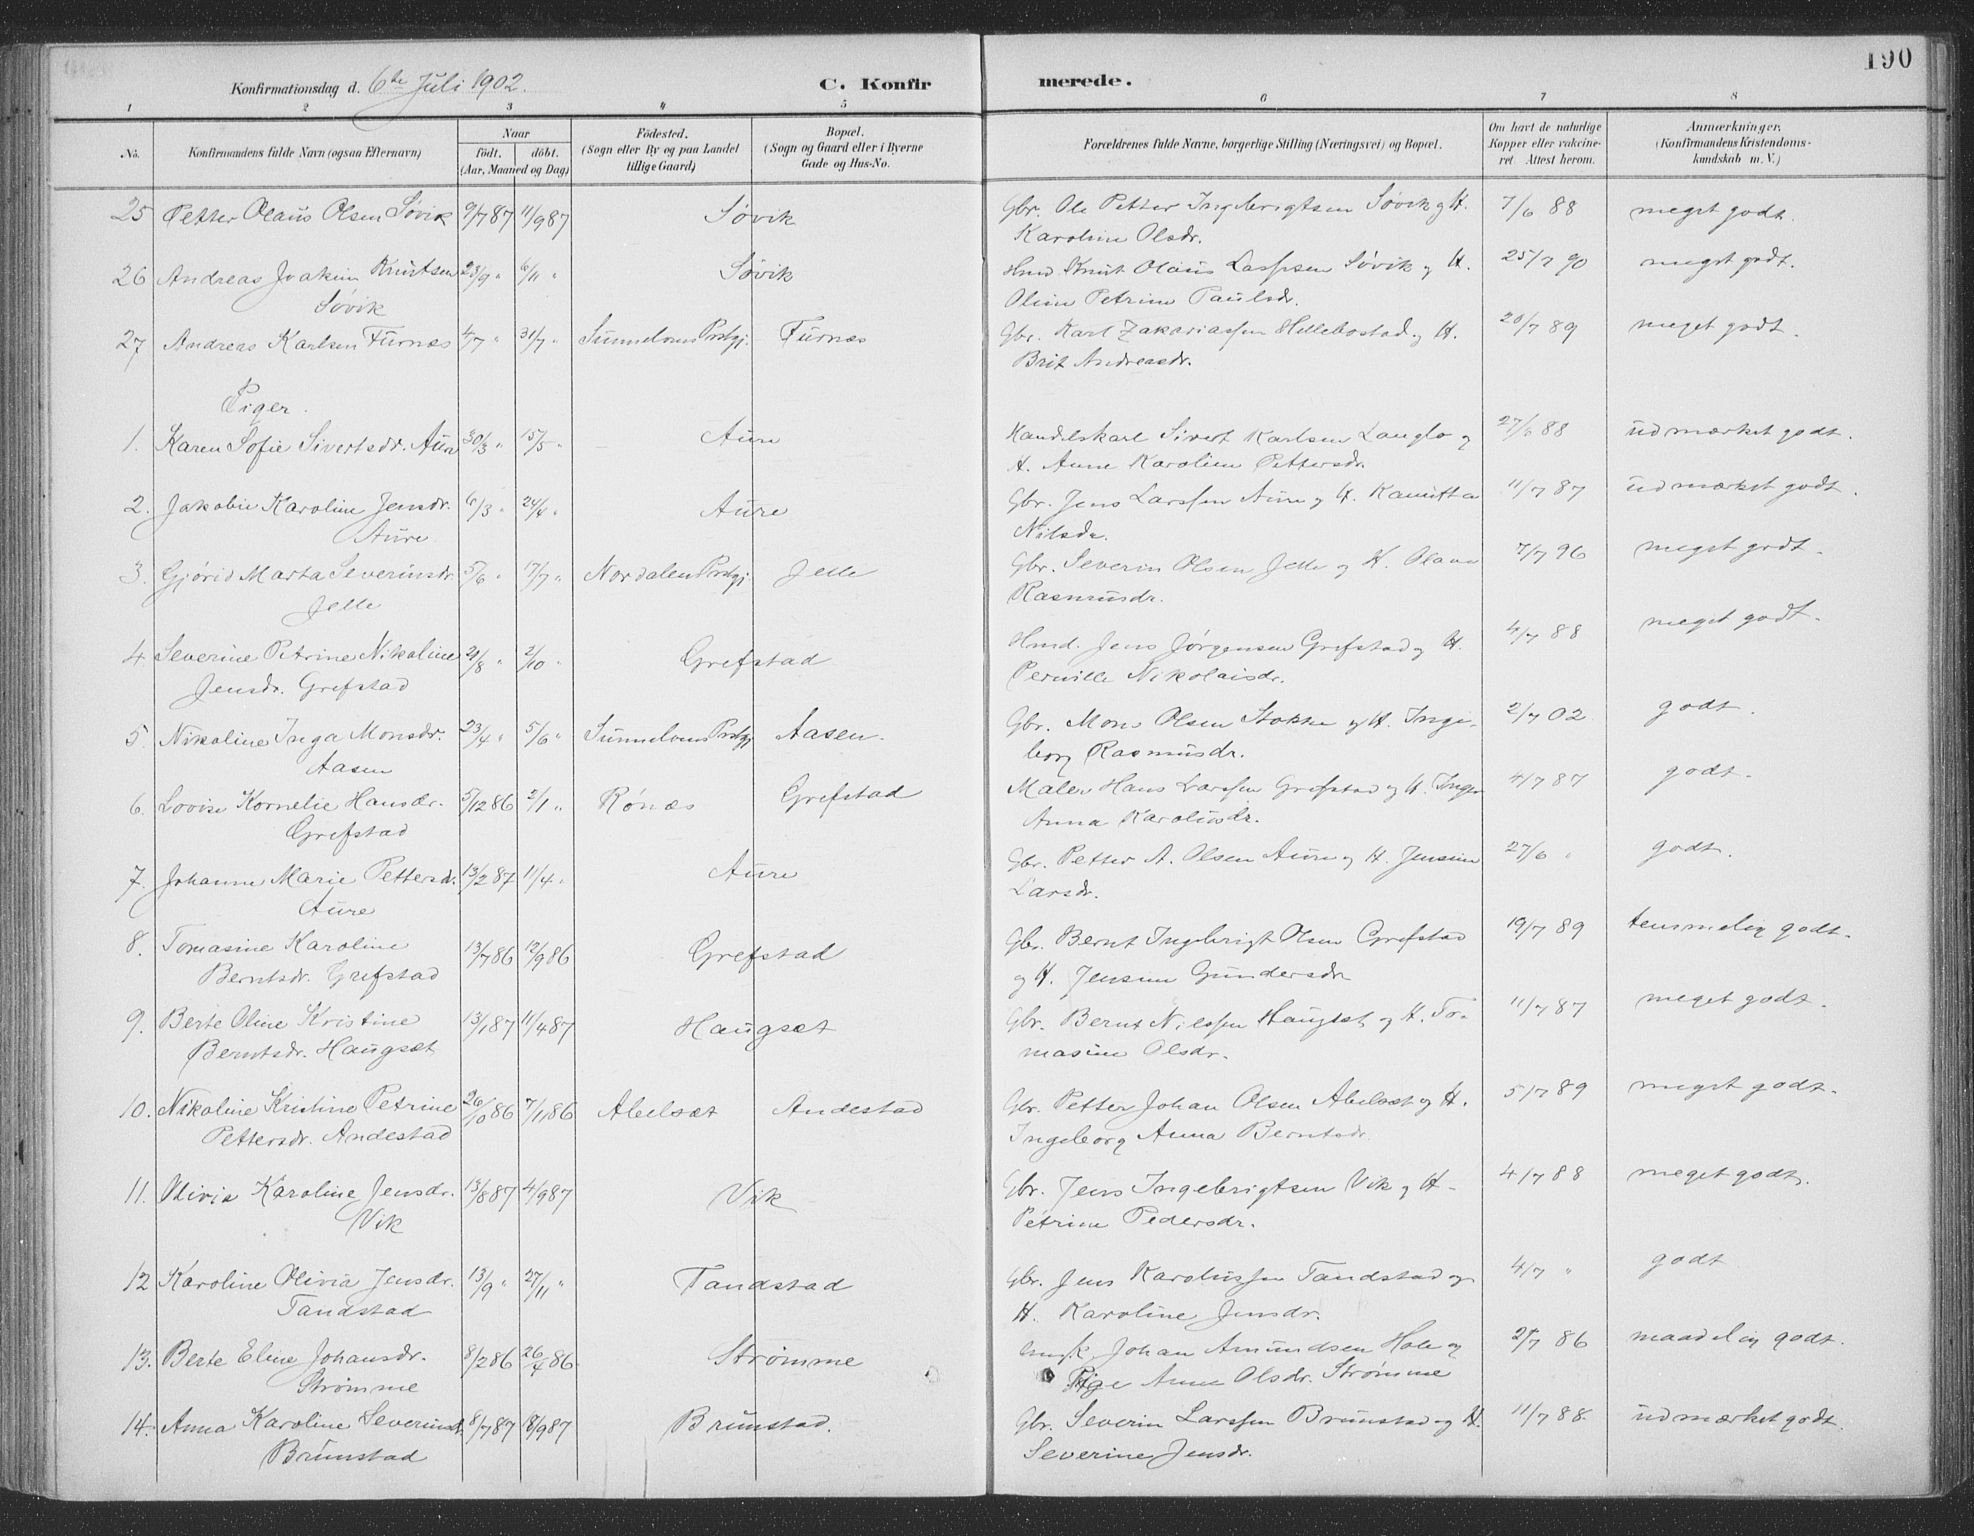 190
Konfirmationsdag d. 6te Juli 1902.
C. Konfirmerede.
1 2 3 4 5 6 7 8
No.
Konfirmandens fulde Navn (ogsaa Efternavn)
Naar
födt. döbt.
(Aar, Maaned og Dag)
Födested.
(Sogn eller By og paa Landet
tillige Gaard)
Bopæl.
(Sogn og Gaard eller i Byerne
Gade og Hus-No.
Forældrenes fulde Navne, borgerlige Stilling (Næringsvei) og Bopæl.
Om havt de naturlige
Kopper eller vakcine-
ret Attest herom.
Anmærkninger.
(Konfirmandens Kristendoms-
kundskab m. V.)
25 Petter Olaus Olsen Søvik 9/7 87 11/9 87 Søvik Gbr. Ole Petter Ingebrigtsen Søvik og H. 7/6 88 meget godt.
Karoline Olsdr.
26 Andreas Joakim Knutsen 23/9 " 6/11 " Søvik Hmd. Knut Olaus Lassesen Søvik og H. 25/7 90 meget godt.
Søvik Oline Petrine Paulsdr.
27 Andreas Karlsen Furnæs 4/7 " 31/7 " Sunnelvens Prstgj. Furnæs Gbr. Karl Zakariassen Hellebostad og H. 20/7 89 meget godt.
Brit Andreasdr.
Piger.
1. Karen Sofie Sivertsdr. Aure 30/3 " 15/5 " Aure Handelskarl Sivert Karlsen Langlo og 27/6 88 udmærket godt.
H. Anne Karoline Pettersdr.
2. Jakobie Karoline Jensdr. 6/3 " 24/4 " Aure Gbr. Jens Larssen Aure og H. 11/7 87 udmærket godt.
Aure Nilsdr.
3. Gjørid Marta Severinsdr. 5/6 " 17/7 " Nordalen Prstgj. Jelle Gbr. Severin Olsen Jelle og H. Olave 7/7 96 meget godt.
Jelle Rasmusdr.
4 Severine Petrine Nikoline 21/8 " 2/10 " Grefstad Hmd. Jens Jørgensen Grefstad og H. 4/7 88 meget godt.
Jensdr. Grefstad Pernille Nikolaisdr.
5. Nikoline Inga Monsdr. 23/4 " 5/6 " Sunnelvens Prstgj Aasen. Gbr. Mons Olsen Stokke og H. Inge- 2/7 02 godt.
Aasen borg Rasmusdr.
6. Lovise Kornelie Hansdr. 5/12 86 2/1 " Rønæs Grefstad Maler Hans Larssen Grefstad og H. Inger 4/7 87 godt.
Grefstad Anna Karolusdr.
7. Johanne Marie Pettersdr. 13/2 87 11/4 " Aure Gbr. Petter A. Olsen Aure og H. Jensine 27/6 " godt.
Aure Larsdr.
8. Tomasine Karoline 13/7 86 12/9 86 Grefstad Gbr. Bernt Ingebrigt Olsen Grefstad 19/7 89 temmelig godt.
Berntsdr. Grefstad og H. Jensine Gundersdr
9. Berte Oline Kristine 13/1 87 11/4 87 Haugsæt Gbr. Bernt Nilssen Haugsæt og H. To- 11/7 87 meget godt.
Berntsdr. Haugsæt masine Olsdr.
10. Nikoline Kristine Petrine 26/10 86 7/11 86 Abelsæt Andestad Gbr. Petter Johan Olsen Abelsæt og H. 5/7 89 meget godt.
Pettersdr. Andestad Ingeborg Anna Berntsdr.
11. Olivia Karoline Jensdr. 13/8 87 4/9 87 Vik Gbr. Jens Ingebrigtsen Vik og H. 4/7 88 meget godt.
Vik Petrine Pedersdr.
12 Karoline Olivia Jensdr. 13/9 " 27/11 " Tandstad Gbr. Jens Karolussen Tandstad og 4/7 " godt
Tandstad H. Karoline Jensdr.
13. Berte Eline Johansdr. 8/2 86 26/4 86 Strømme Ungk. Johan Amundsen Hole og 21/7 86 maadelig godt.
Strømme Pige Anne Olsdr. Strømme
14. Anna Karoline Severinsdr. 8/7 87 8/9 87 Brunstad. Gbr. Severin Larssen Brunstad og H. 11/7 88. udmærket godt.
Brunstad Severine Jensdr.